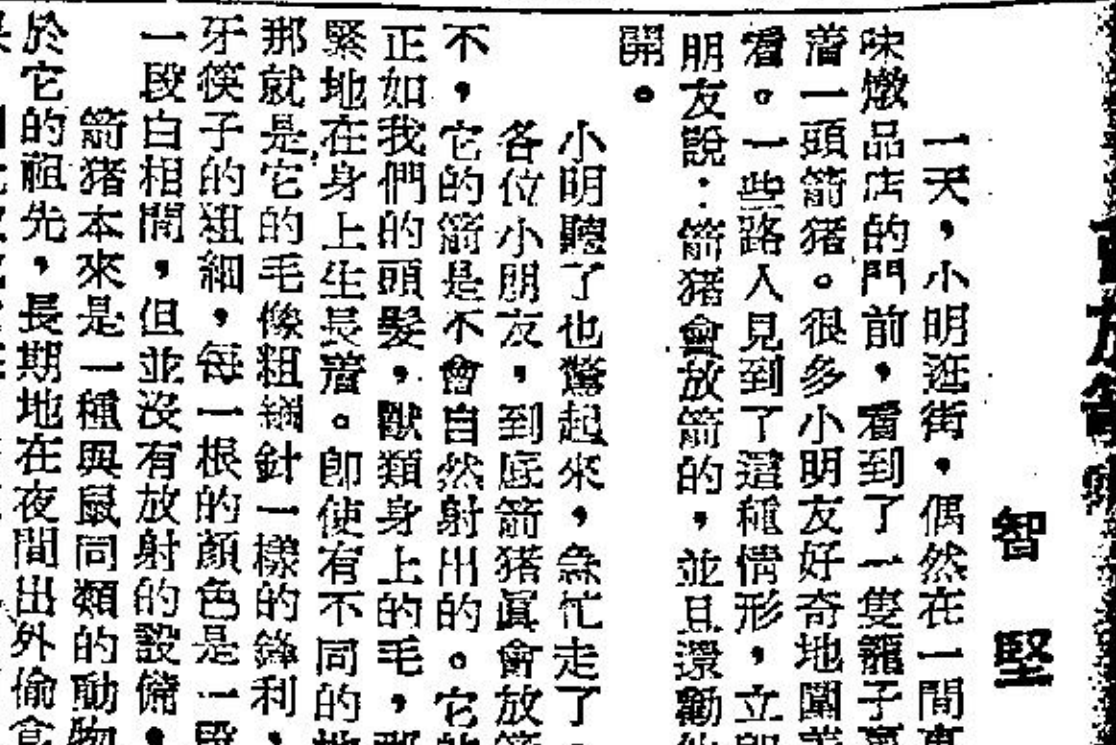 智堅
一天，小明逛街，偶然在一間
味燉品店的門前，看到了一隻籠子
着一頭箭猪。很多小明友好奇地圍
看。一些路人見到了這種情形，立
朋友說：箭猪會放箭的，並且還勸
開。
小明聽了也驚起來，急忙走了
各位小朋友，到底箭猪眞會放
不，它的箭是不會自然射出的。它
正如我們的頭髮，獸類身上的毛，
緊地在身上生長着。卽使有不同的
那就是它的毛像粗鋼針一樣的鋒利，
牙筷子的粗細，每一根的顏色是一
一段白相間，但並沒有放射的設備，
箭猪本來是一種與鼠同類的動物
於它的祖先，長期地在夜間出外偷食